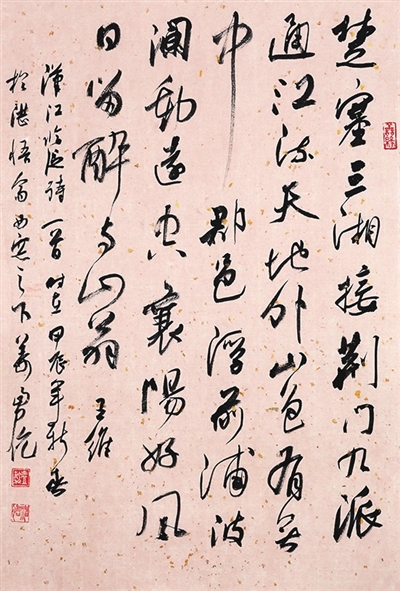 楚塞三湘接荆门九派
通江流天地外山色有无
中郡邑浮前浦波
澜動遠空襄陽好風
日留醉与山翁 王维
漢江临泛诗一首 时在甲辰年新春
於湛悟斋西窓之下